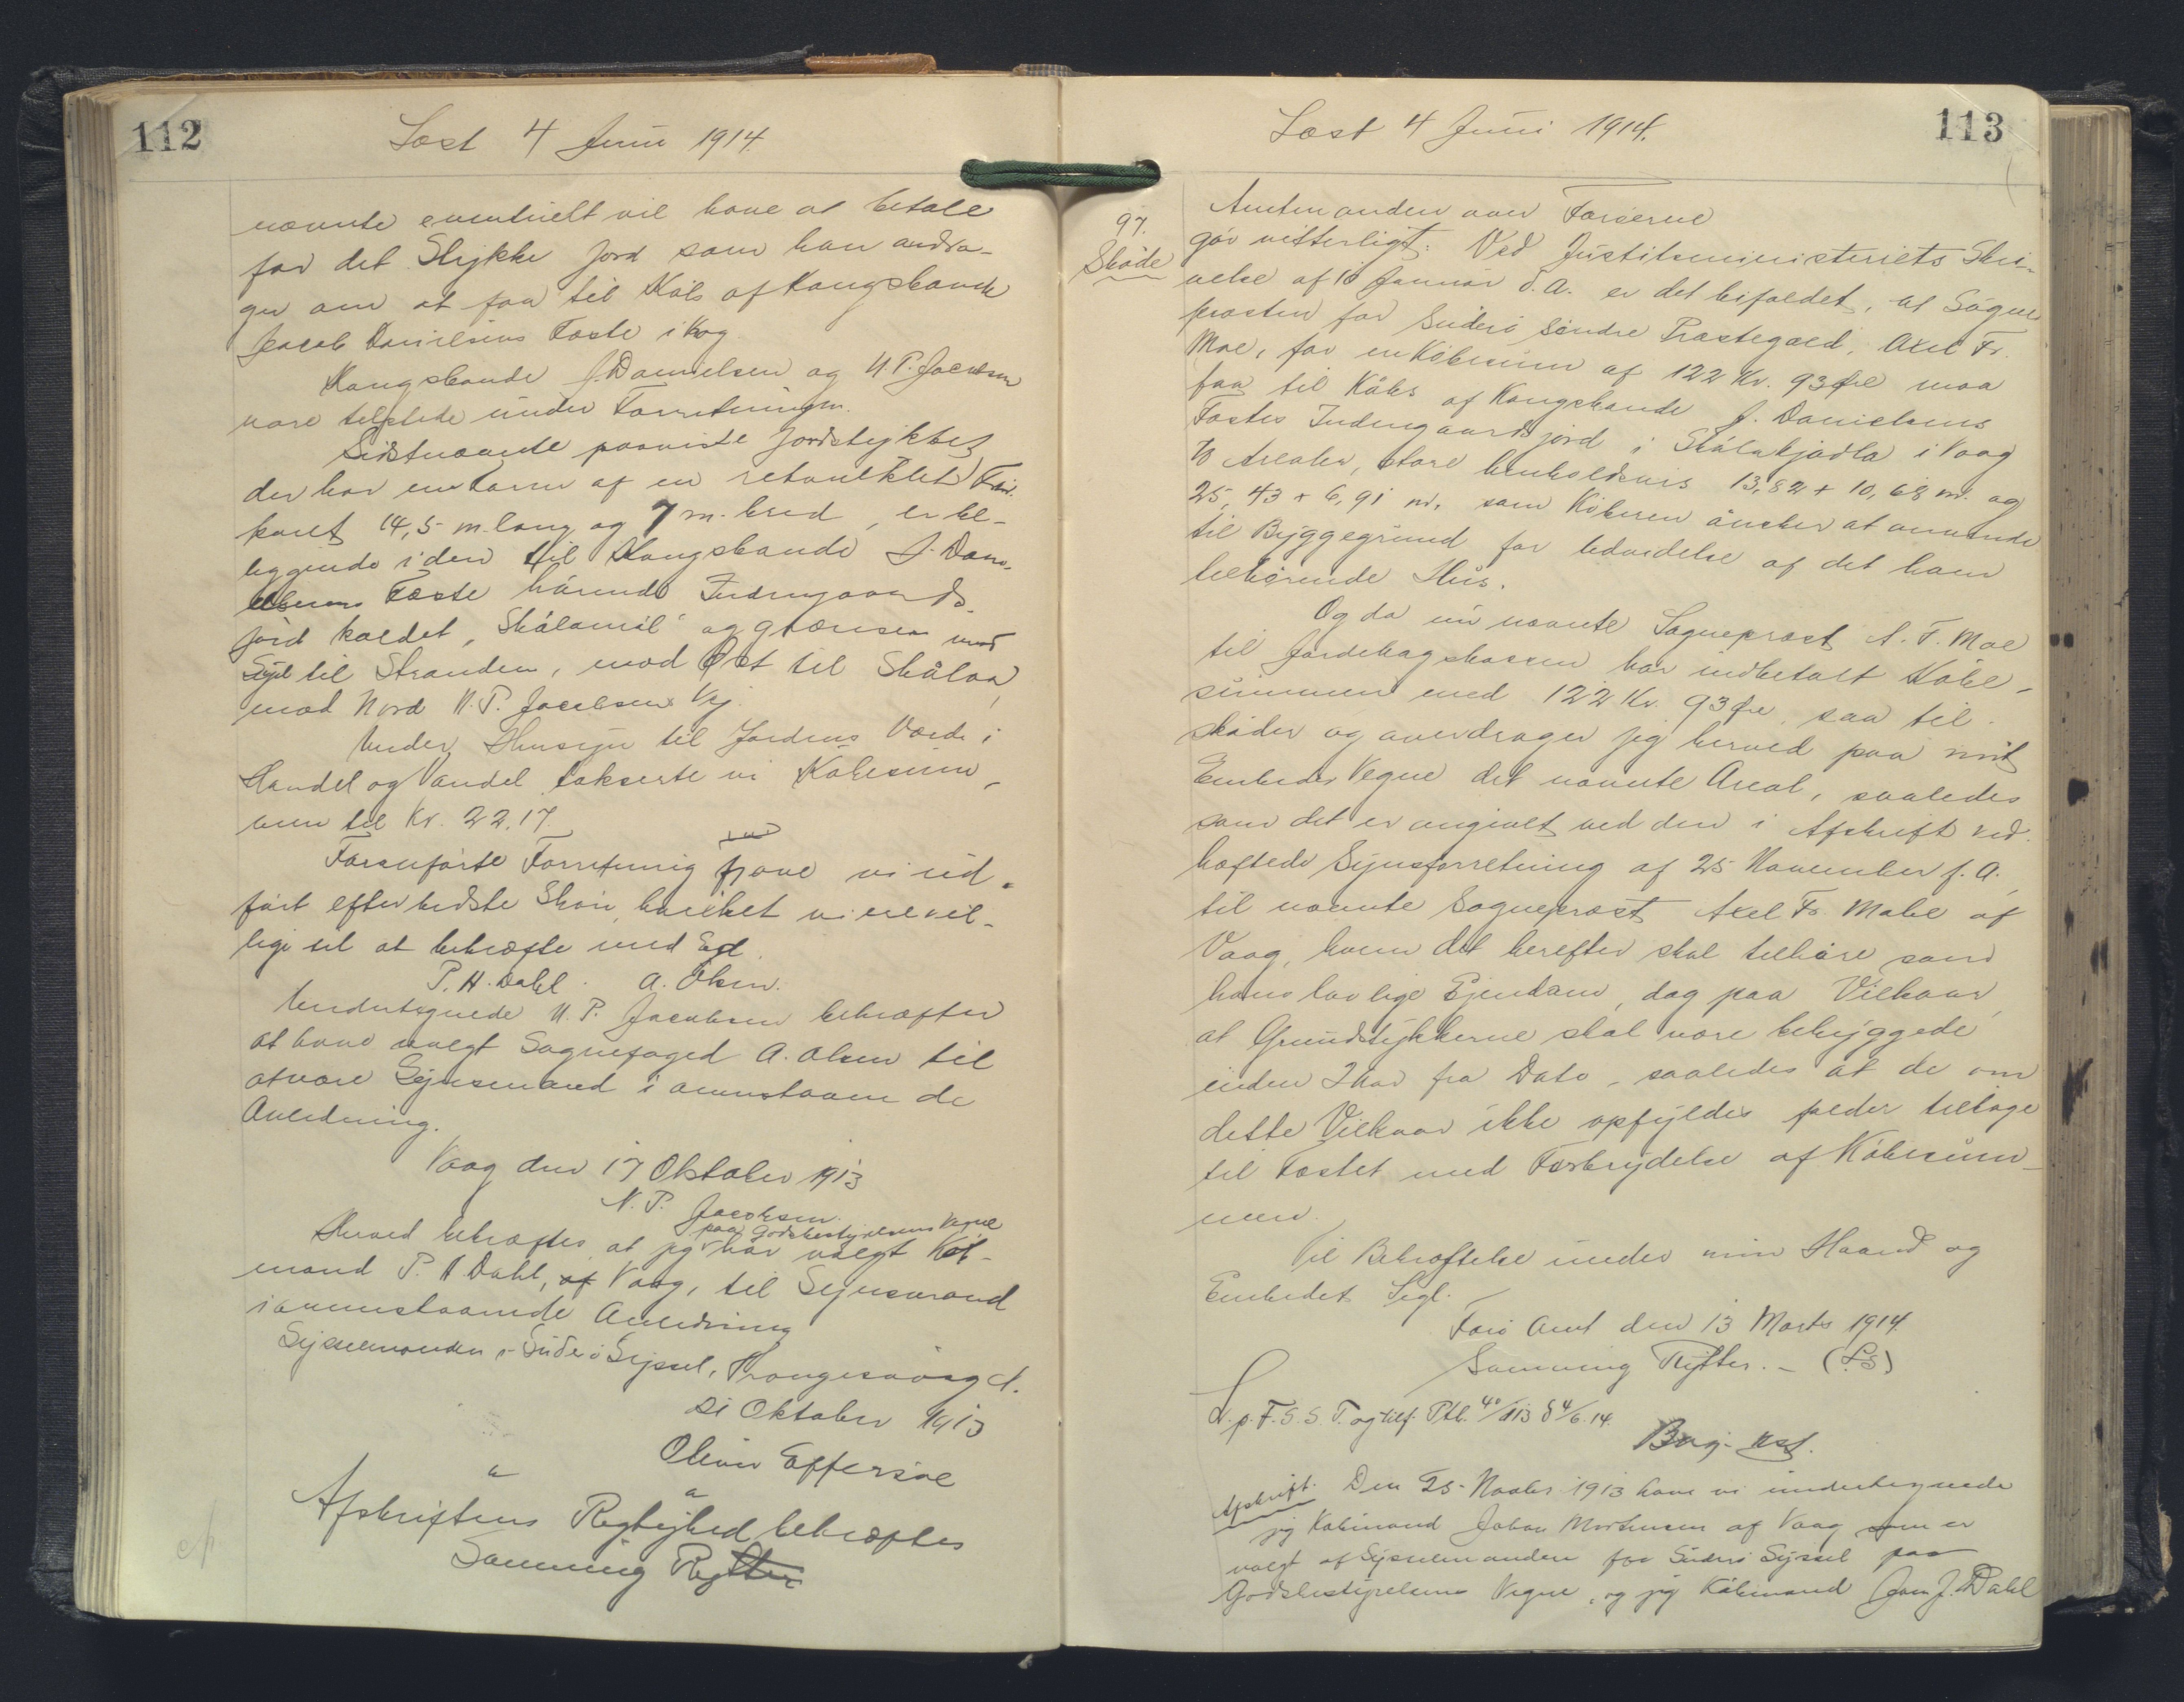 112
Læst 4 Juni 1914.
nævnte eventuelt vil have at betale
for det Stykke Jord som han andra-
ger om at faa til Købs af Kongsbonde
Jacob Danielsens Fæste i Vaag.
Kongsbonde J. Danielsen og N. P. Jacobsen
vare tilstede under Forretningen.
Sidstnævnte paaviste Jordstykket
der har en Form af en retvinklet Fir-
kant 14,5 m. lang og 7 m. bred, er be-
liggende i den til Kongsbonde J. Dani-
elsens Fæste hørende Indengaards-
jord kaldet, "Skálamál" og grænser mod
Syd til Stranden, mod Øst til Skålaa,
mod Nord N. P. Jacobsens Vej.
Under Hensyn til Jordens Værdi i
Handel og Vandel takserte vi Købesum-
men til Kr. 22,17.
Foranførte Forretning have vi ud-
ført efter bedste Skøn, hvilket vi ere vil-
lige til at bekræfte med Ed.
P. H. Dahl. A. Olsen.
Undertegnede N. P. Jacobsen bekræfter
at have valgt Sognefoged A. Olsen til
at være Synsmand i ovenstaaende
Anledning.
Vaag den 17 Oktober 1913
N. P. Jacobsen.
paa Godsbestyrelsens Vegne
Herved bekræftes at jeg har valgt Køb-
mand P. H. Dahl, af Vaag, til Synsmand
i ovenstaaende Anledning
Sysselmanden i Suderø Syssel, Trangisvaag d.
21 Oktober 1913
Oliver Effersøe
Afskriftens Rigtighed bekræftes
Samming Rytter
113
Læst 4 Juni 1914.
97.
Skøde
Amtmanden over Færøerne
gør vitterligt: Ved Justitsministeriets Skri-
velse af 10 Januar d. A. er det bifaldet, at Sogne
præsten for Suderø søndre Præstegæld, Axel Fr.
Moe, for en Købesum af 122 Kr. 93 Øre maa
faa til Købs af Kongsbonde J. Danielsens
Fæstes Indengaardsjord i Skálakjadla i Vaag
to Arealer, store henholdsvis 13,82 + 10,68 m². og
25,43 + 6,91 m², som Køberen ønsker at anvende
til Byggegrund for Udvidelse af det ham
tilhørende Hus.
Og da nu nævnte Sognepræst A. F. Moe
til Jordebogskassen har indbetalt Købe-
summen med 122 Kr. 93 Øre, saa til-
skøder og overdrager jeg herved paa mit
Embedes Vegne det nævnte Areal, saaledes
som det er angivet ved den i Afskrift ved-
hæftede Synsforretning af 25 November f. A.,
til nævnte Sognepræst Axel Fr. Moe af
Vaag, hvem det herefter skal tilhøre som
hans lovlige Ejendom, dog paa Vilkaar,
at Grundstykkerne skal være bebyggede
inden 2 Aar fra Dato, saaledes at de om
dette Vilkaar ikke opfyldes falder tilbage
til Fæstet med Forbrydelse af Købesum-
men.
Til Bekræftelse under min Haand og
Embedets Segl.
Færø Amt den 13 Marts 1914.
Samming Rytter. - (L.S)
L. p. F. S. S. T. og tilf. Ptb. 40/113 d 4/6.14.
Afskrift. Den 25. Novbr. 1913 have vi undertegnede
jeg Købmand Johan Mortensen af Vaag som er
valgt af Sysselmanden for Suderø Syssel paa
Godsbestyrelsens Vegne, og jeg Købmand J. Dahl